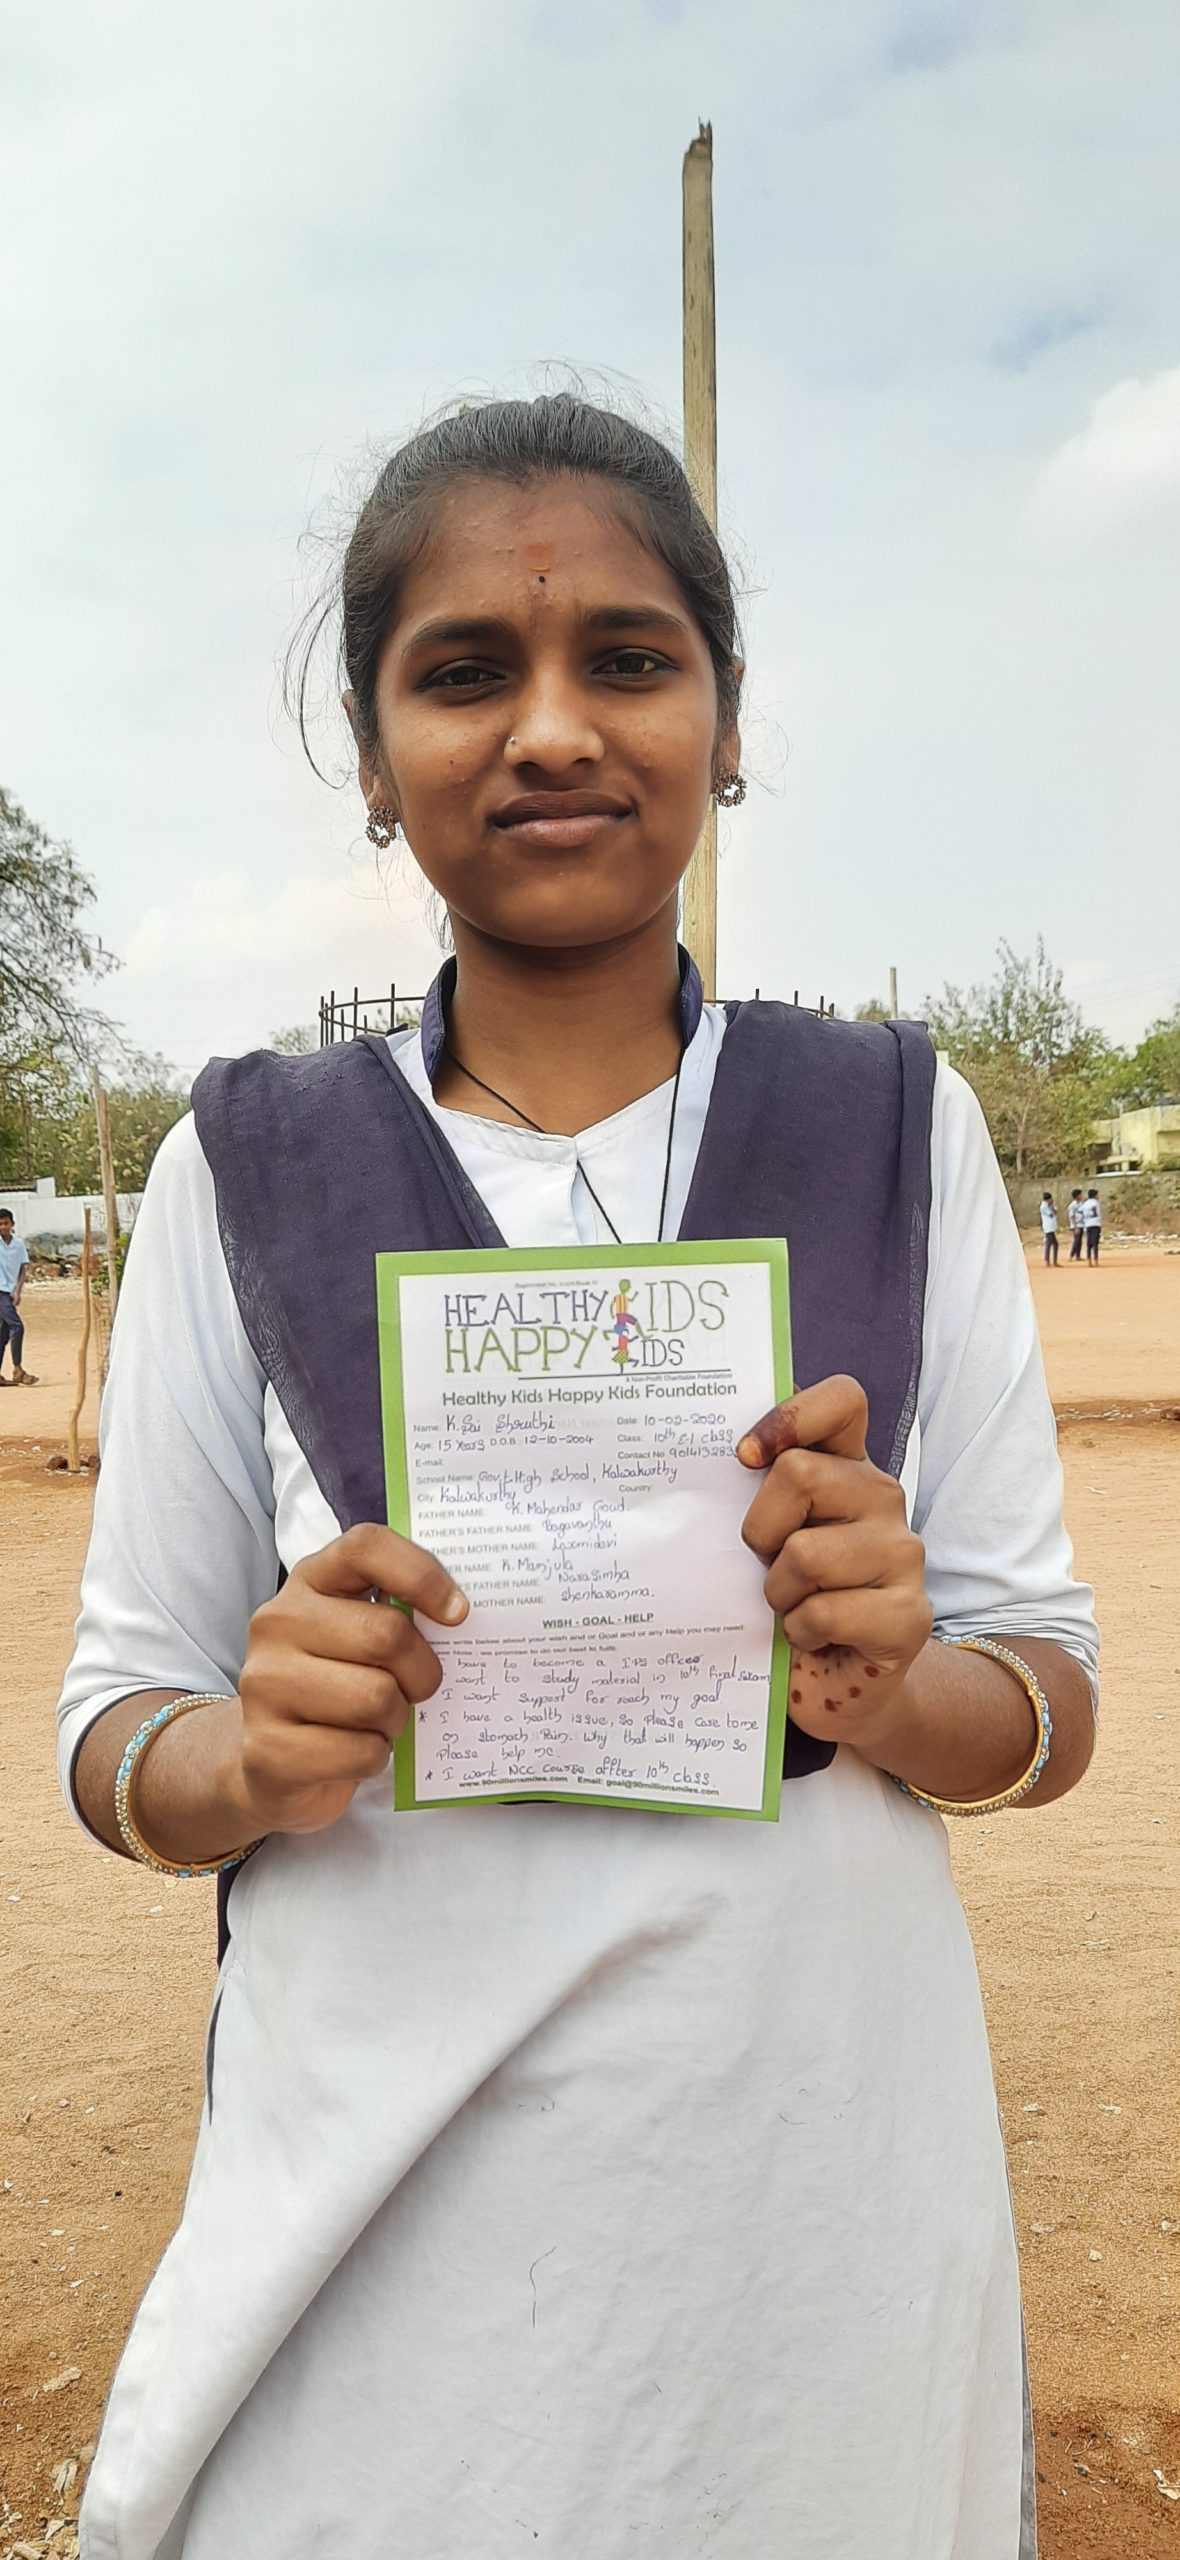 HEALTHY KIDS
HAPPY KIDS
A Non-Profit Charitable Foundation
Healthy Kids Happy Kids Foundation
Name: K. Sai Shruthi Date: 10-02-2020
Age: 15 Years D.O.B: 12-10-2004 Class: 10th E/1 class
E-mail: Contact No: 901413283
School Name: Govt High School, Kalwakurthy
City: Kalwakurthy Country:
FATHER NAME: K. Mahendar Goud.
FATHER'S FATHER NAME: Bagavanthu
FATHER'S MOTHER NAME: Laxmidevi
ER NAME: K. Manjula
'S FATHER NAME: Narasimha
MOTHER NAME: Shenkaramma.
WISH - GOAL - HELP
ease write below about your wish and or Goal and or any Help you may need:
ase Note: we promise to do our best to fulfil.
I have to become a IPS officer
want to study material in 10th final Exam
I want support for reach my goal.
* I have a health issue, so please care to me
on stomach Pain. Why that will happen so
please help me.
* I want NCC course affter 10th class.
www.90millionsmiles.com Email: goal@90millionsmiles.com